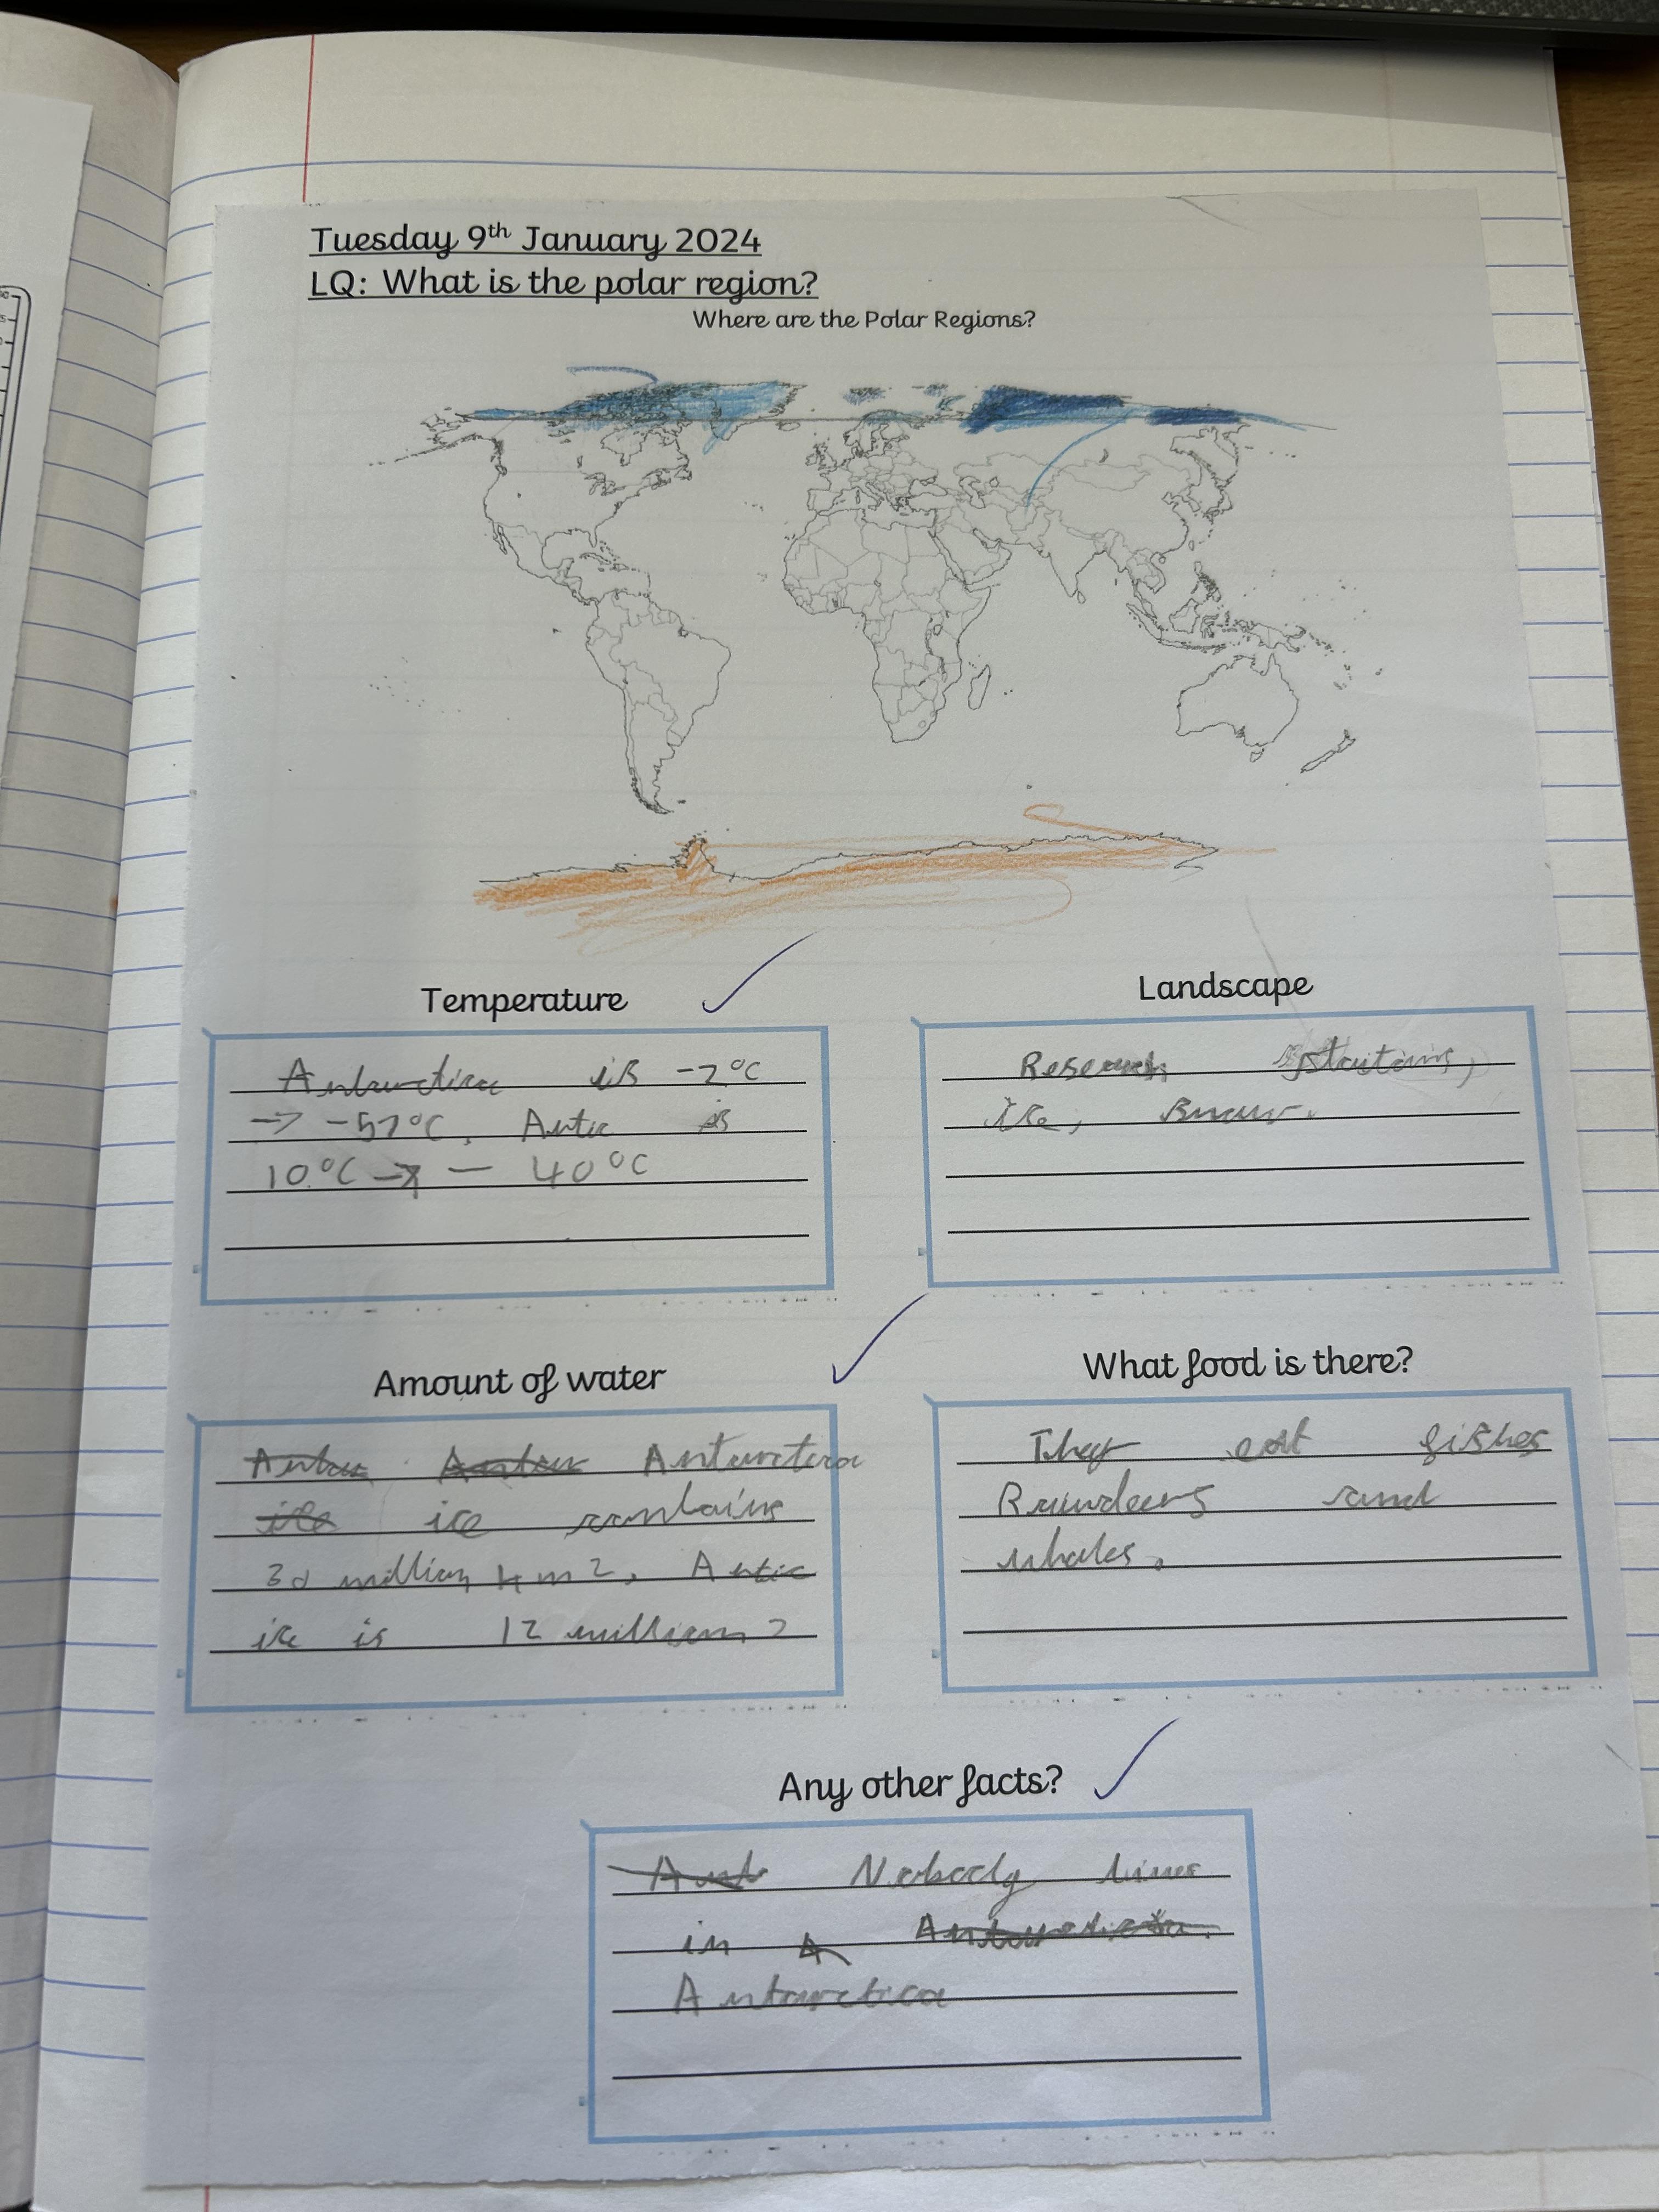 Tuesday 9th January 2024
LQ: What is the polar region?
Where are the Polar Regions?
Temperature
Landscape
Antarctica is -2°C
→ -57°C. Artic is
10°C → - 40°C
Research
ice, snow.
Amount of water
What food is there?
Antarctica
ice contains
30 million km2. Artic
ice is 12 million 2
They eat fishes
Raindeers and
whales.
Any other facts?
Nobody lives
in
Antarctica